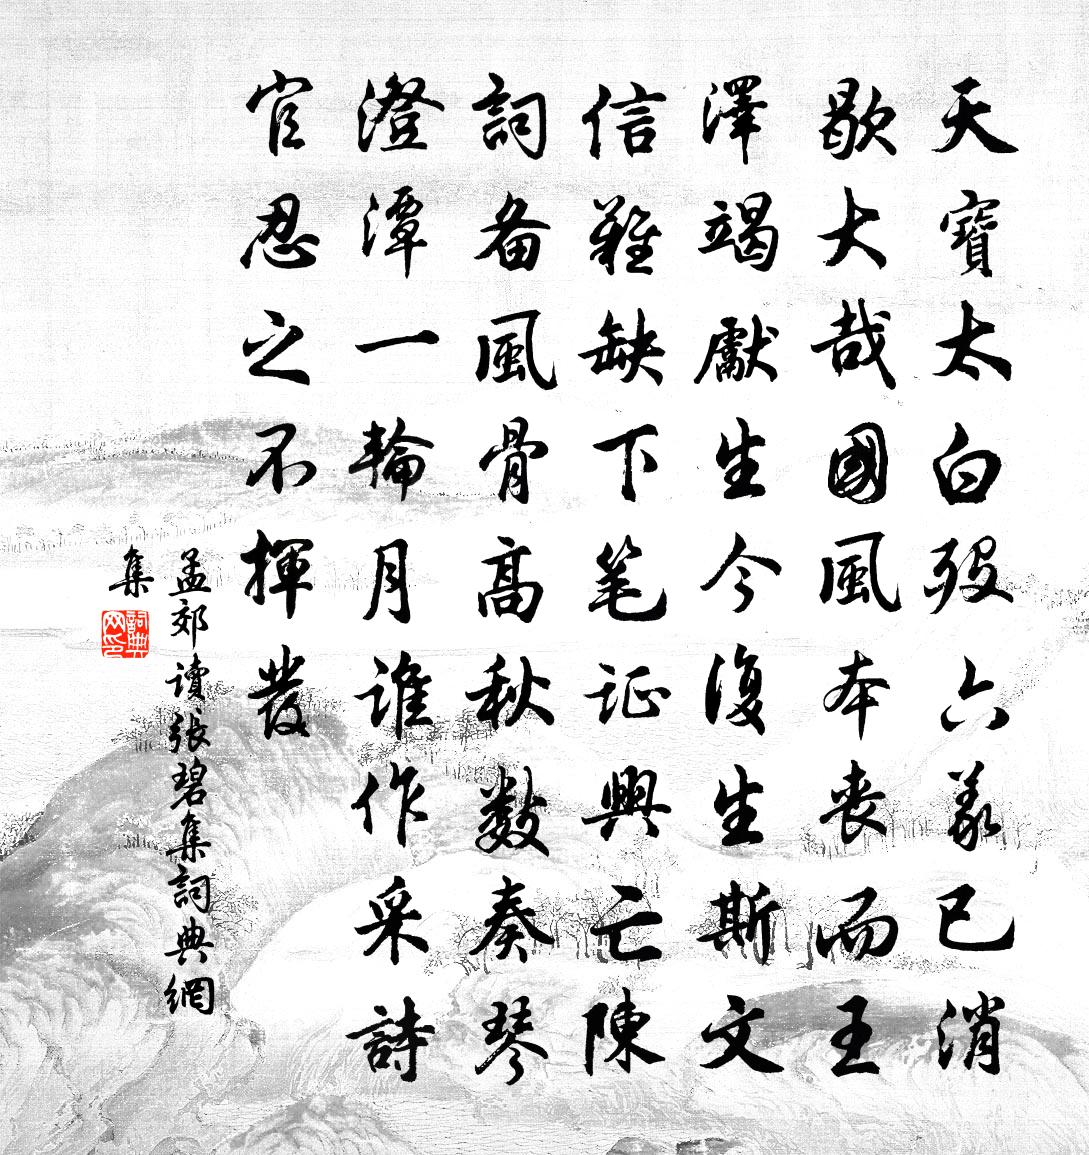 天寶太白歿六義已消
歇大哉國風本喪而王
澤竭獻生今復生斯文
信難缺下笔证興亡陳
詞备風骨高秋数奏琴
澄潭一輪月誰作采詩
官忍之不揮發
孟郊讀張碧集詞典網
集
詞典
网印